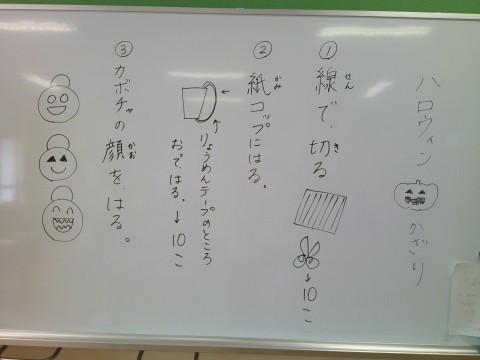 ハロウィン かざり
① 線で、切る
せん き
→10こ
② 紙コップにはる。
かみ
りょうめんテープのところ
おで、はる。→10こ
③ カボチャの顔を、はる。
かお